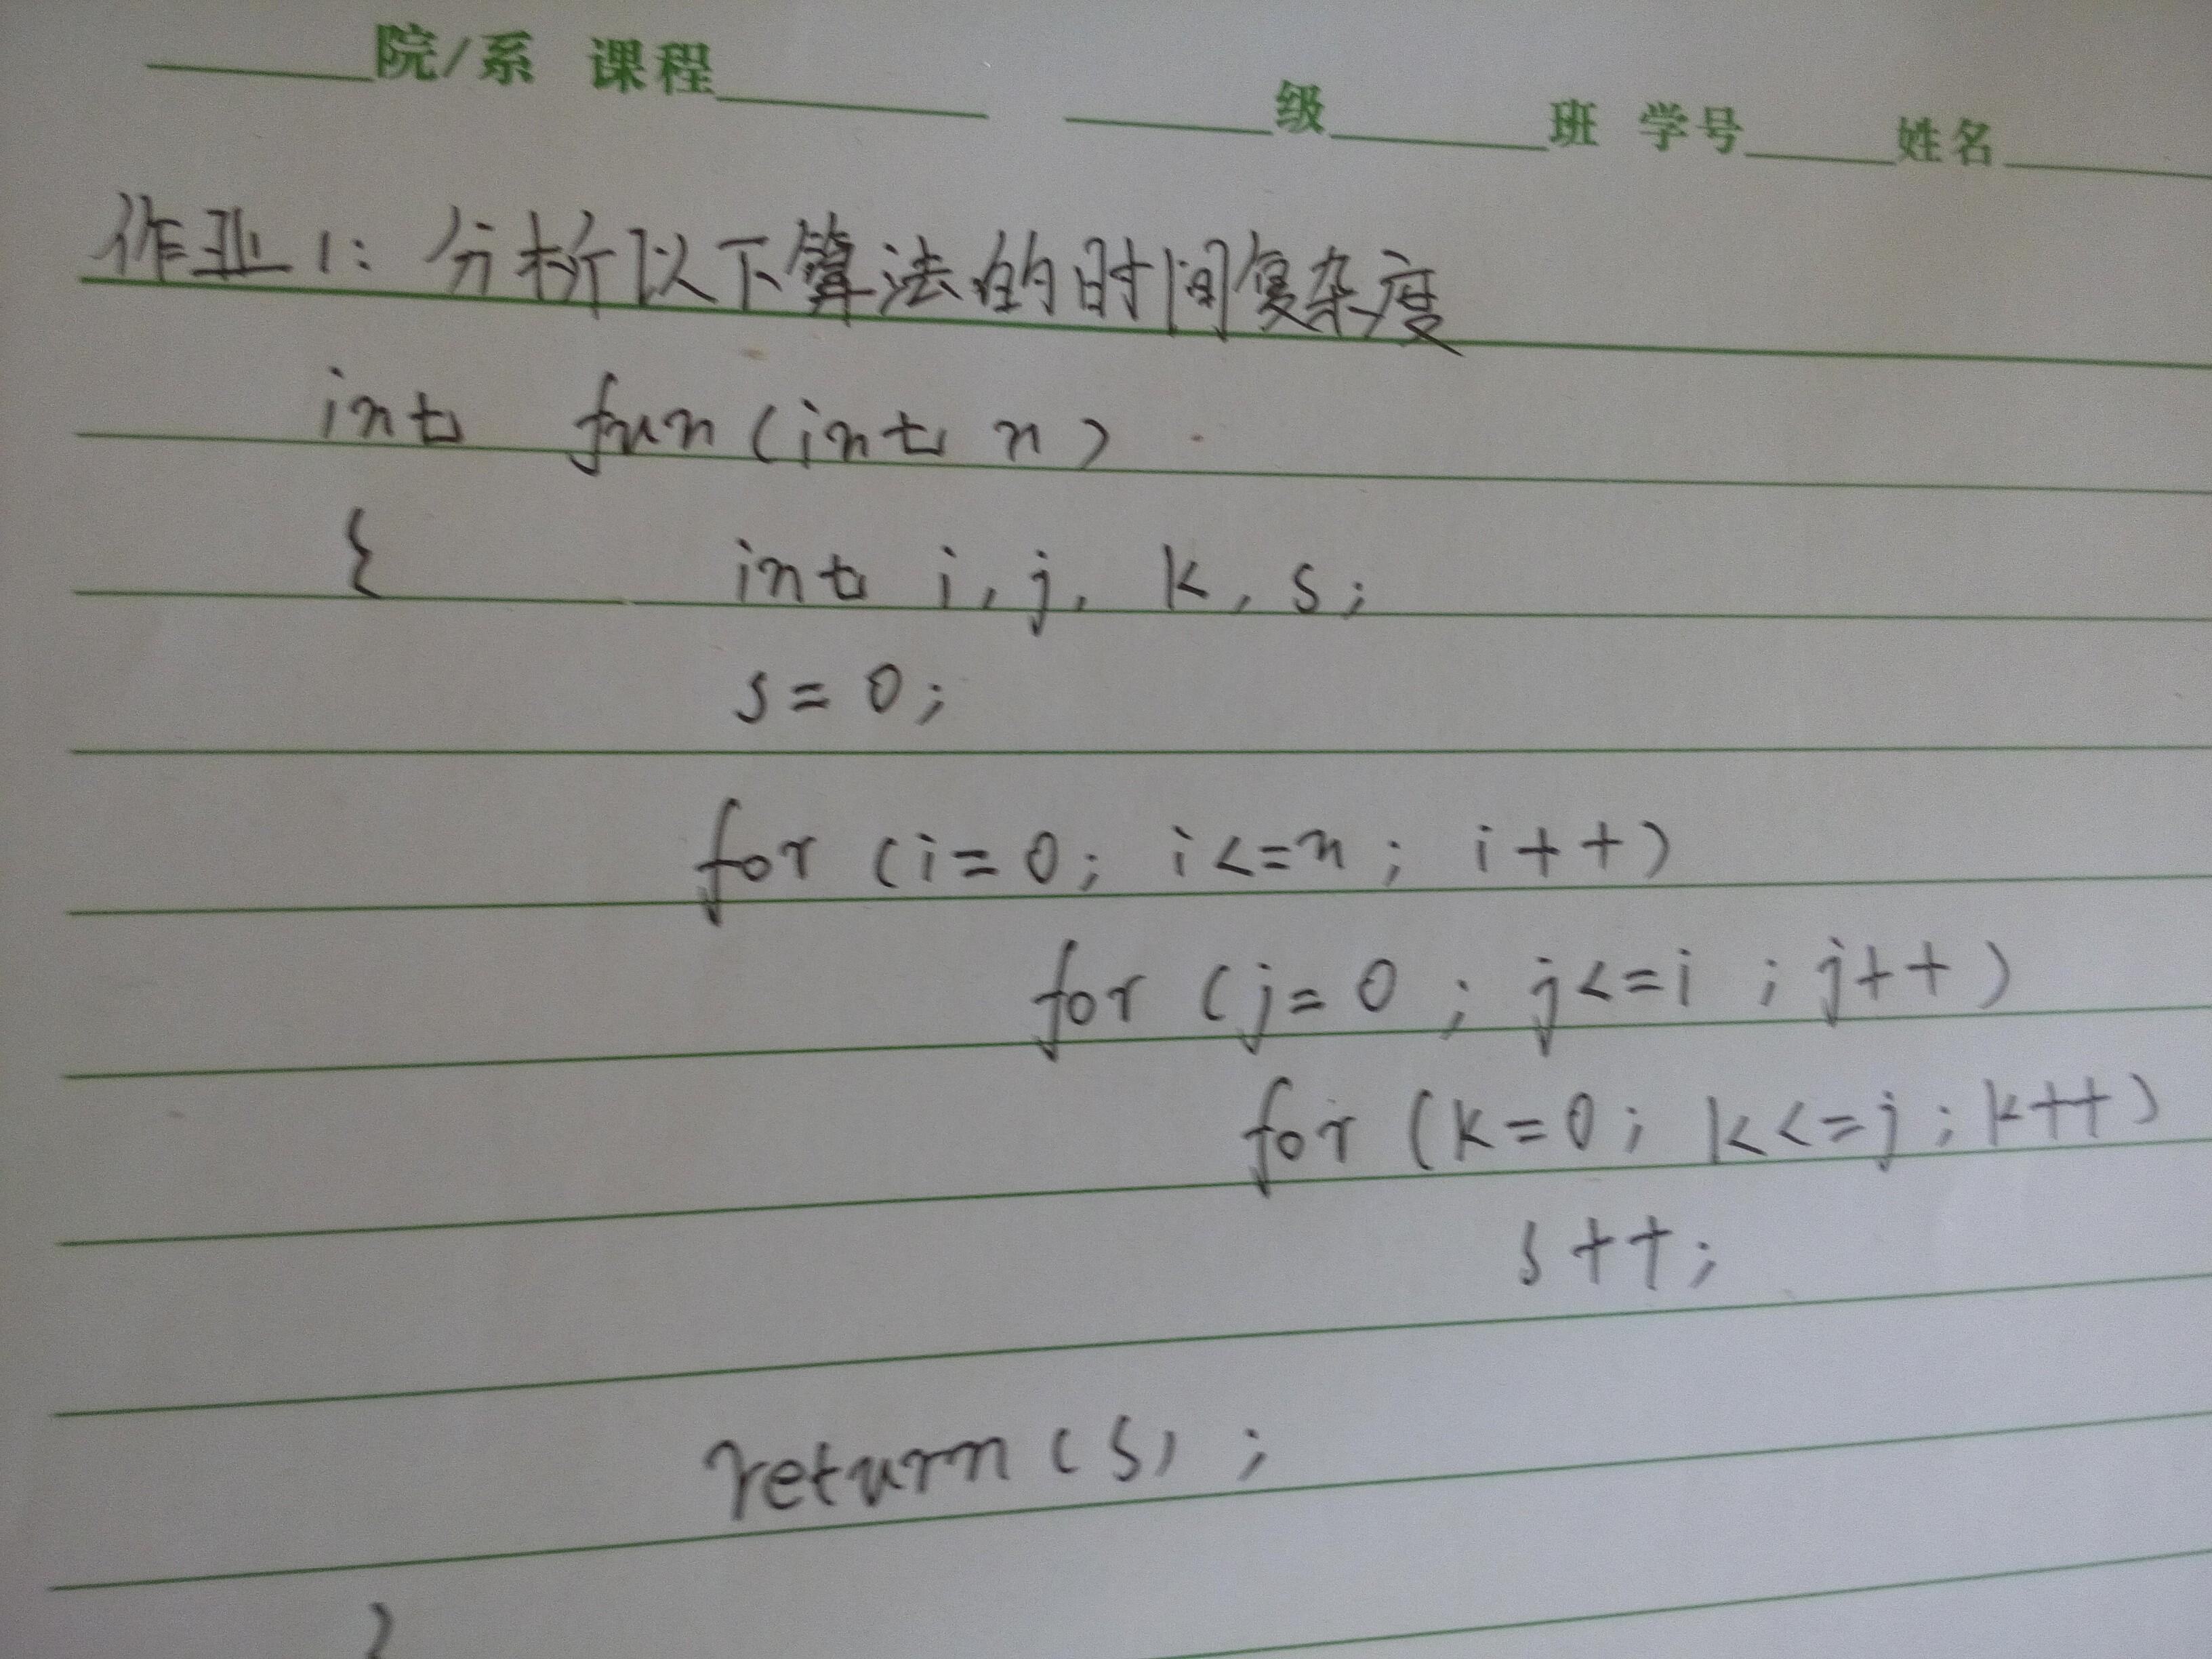 院/系 课程 级 班 学号 姓名
作业1: 分析以下算法的时间复杂度
int fun(int n)
{ int i, j, k, s;
s = 0;
for (i=0; i<=n; i++)
for (j=0; j<=i; j++)
for (k=0; k<=j; k++)
s++;
return(s);
}